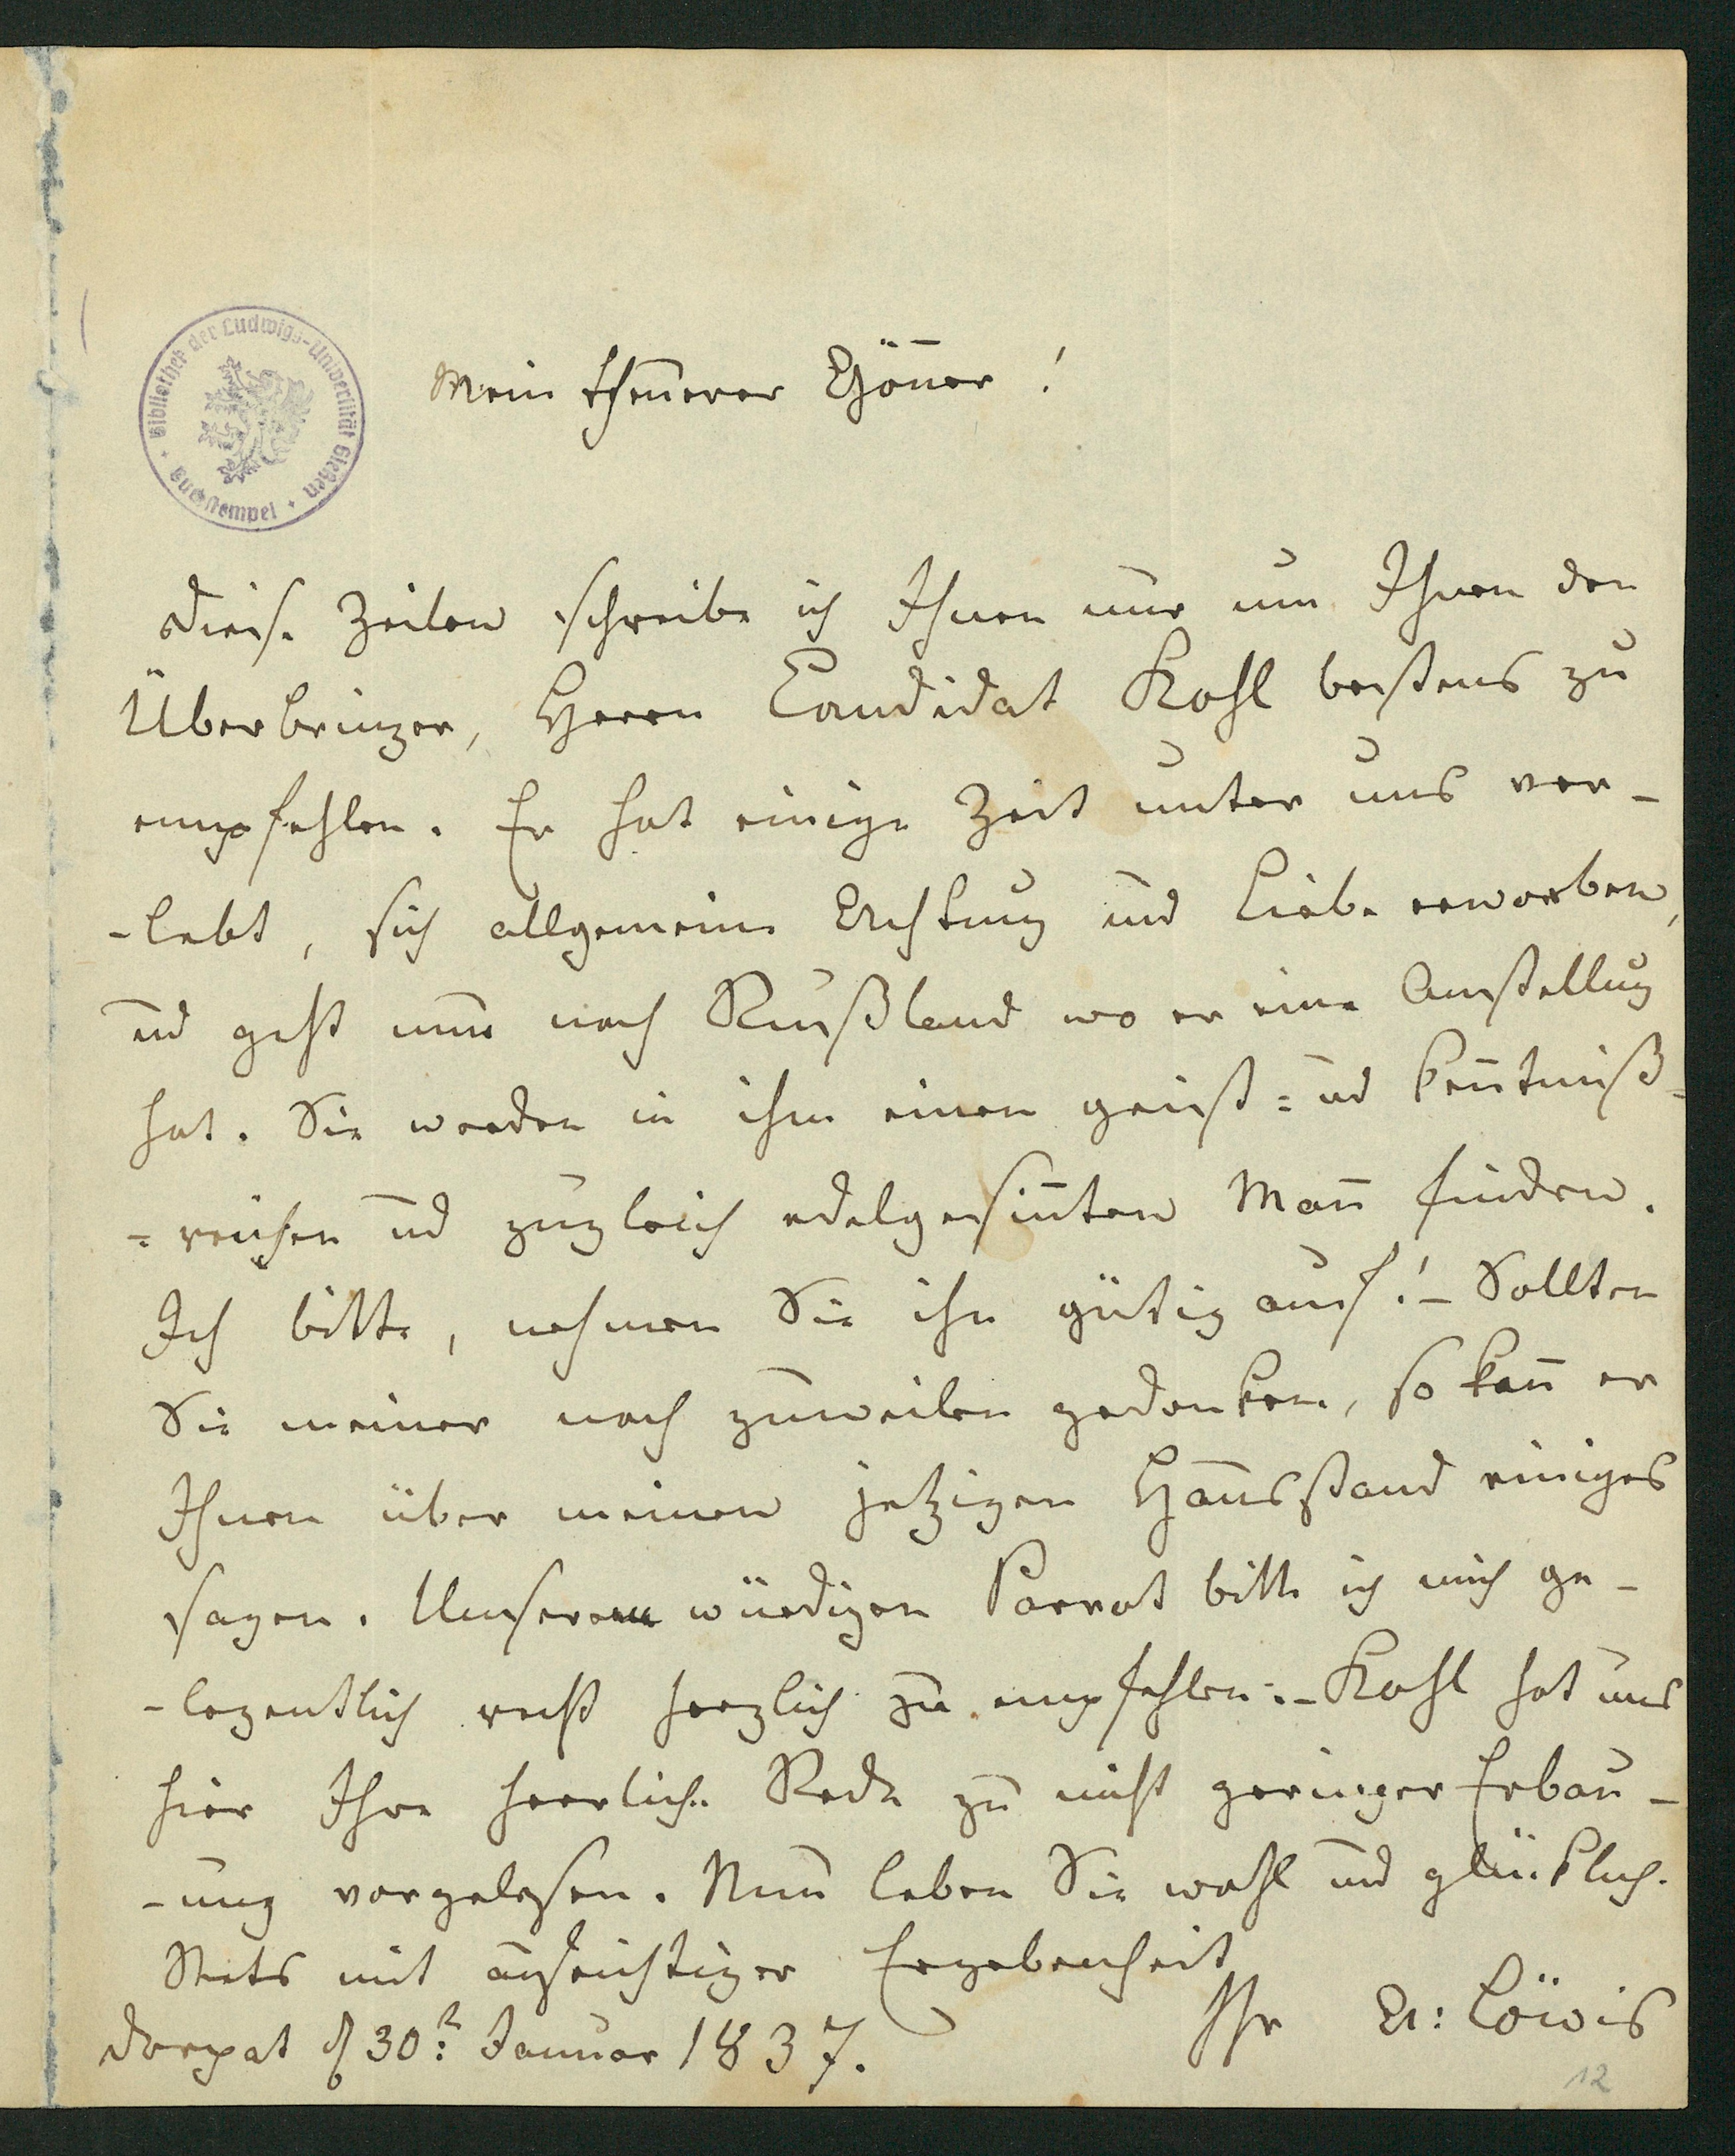 Bibliothek der Ludwigs-Universität Gießen
Buchstempel
Mein theuerer Göner!
Diese Zeilen schreibe ich Ihnen nur um Ihnen den
Überbringer, Herrn Candidat Kohl bestens zu
empfehlen. Er hat einige Zeit unter uns ver-
-lebt, sich allgemeine Achtung und Liebe erworben,
ud geht nun nach Rußland wo er eine Anstellug
hat. Sie werden in ihm einen geist= ud kentniß=
=reichen ud zugleich edelgesinten Man finden.
Ich bitte, nehmen Sie ihn gütig auf! - Sollten
Sie meiner noch zuweilen gedenken, so kan er
Ihnen über meinen jetzigen Hausstand einiges
sagen. Unserem würdigen Parrot bitte ich mich ge-
-legentlich recht herzlich zu empfehlen. - Kohl hat uns
hier Ihre herrliche Rede zu nicht geringer Erbau-
-ung vorgelesen. Nun leben Sie wohl und glücklich.
Stets mit aufrichtiger Ergebenheit
Ihr A: Löwis
Dorpat d 30: Januar 1837.
12